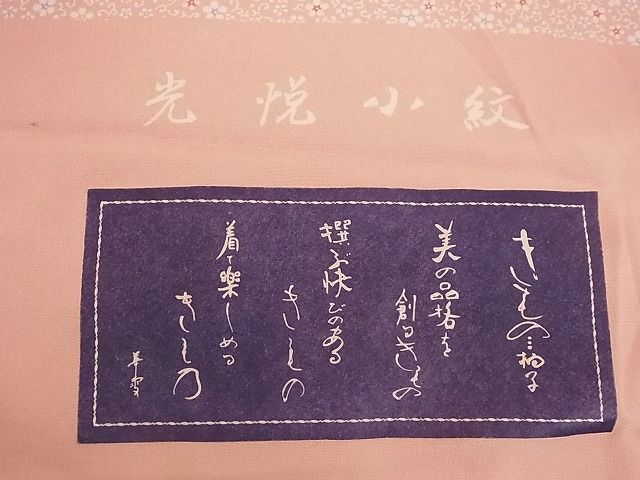 光悦小紋
きもの三拍子
美の品格を
創るきもの
撰ぶ快びのある
きもの
着て楽しめる
きもの